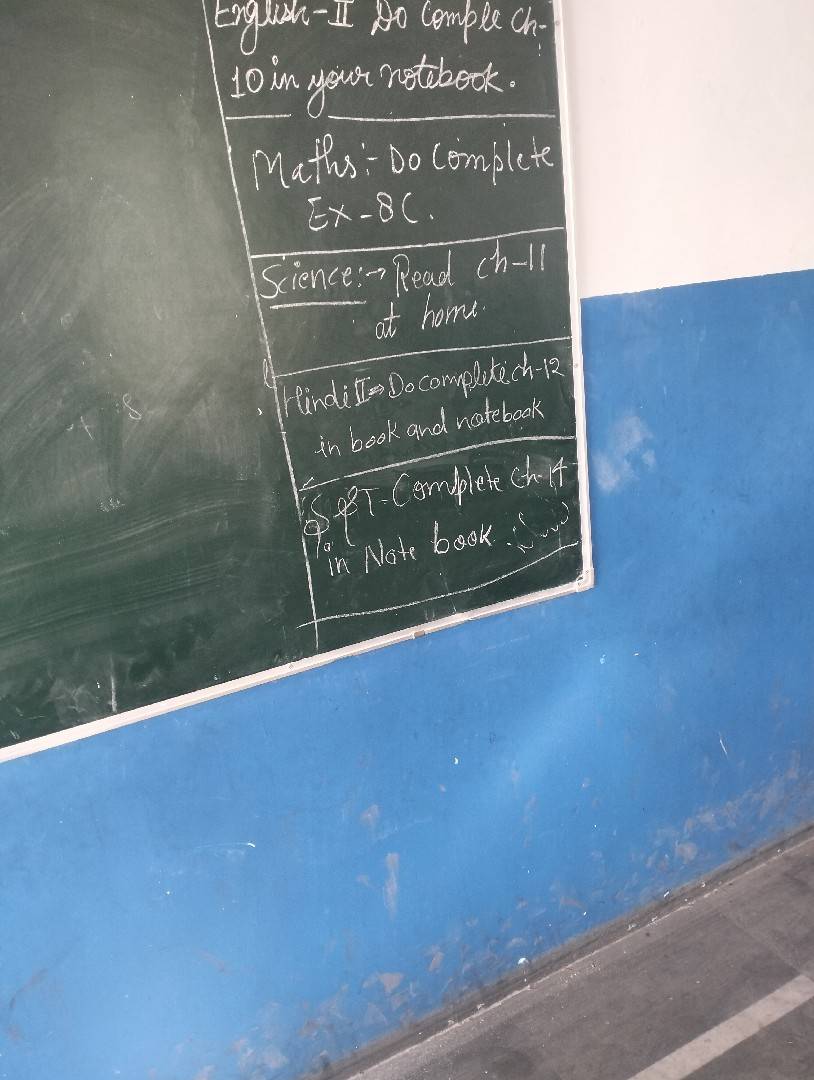 English-II Do Comple Ch-
10 in your notebook.
Maths:- Do Complete
Ex-8C.
Science:→ Read ch-11
at home.
Hindi II→ Do complete ch-12
in book and notebook
Complete Ch-14
in Note book.
+ 8